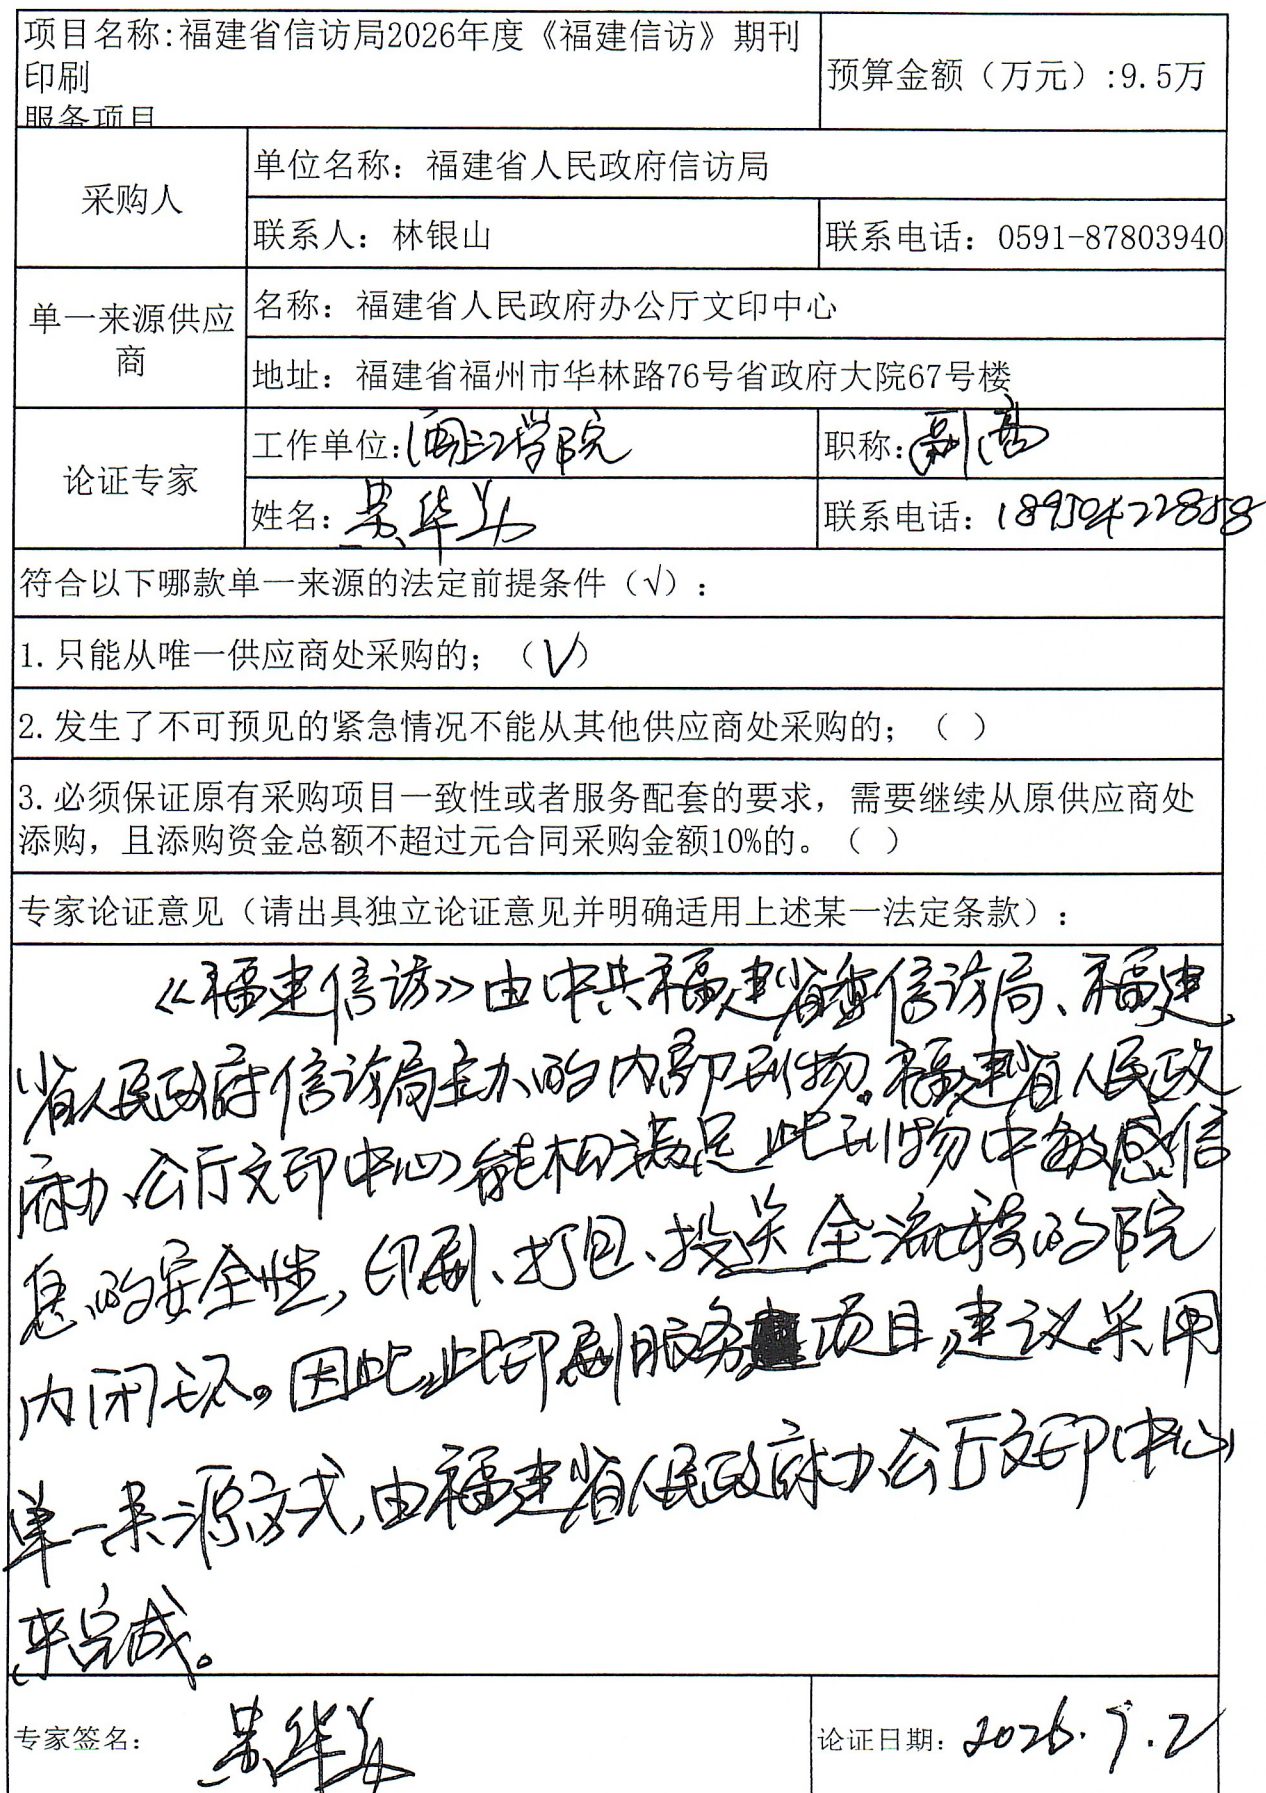 项目名称:福建省信访局2026年度《福建信访》期刊
印刷
服务项目
预算金额（万元）:9.5万
采购人
单位名称：福建省人民政府信访局
联系人：林银山
联系电话：0591-87803940
单一来源供应
商
名称：福建省人民政府办公厅文印中心
地址：福建省福州市华林路76号省政府大院67号楼
论证专家
工作单位:闽江学院
职称:副高
姓名:
联系电话：18950422858
符合以下哪款单一来源的法定前提条件（√）：
1.只能从唯一供应商处采购的；（√）
2.发生了不可预见的紧急情况不能从其他供应商处采购的；（ ）
3.必须保证原有采购项目一致性或者服务配套的要求，需要继续从原供应商处
添购，且添购资金总额不超过元合同采购金额10%的。（ ）
专家论证意见（请出具独立论证意见并明确适用上述某一法定条款）：
《福建信访》由中共福建省委信访局、福建
省人民政府信访局主办的内部刊物。福建省人民政
府办公厅文印中心能满足此刊物中敏感信
息的安全性，印刷、打包、投送全流程的院
内闭环。因此，此印刷服务项目，建议采用
单一来源方式，由福建省人民政府办公厅文印中心
来完成。
专家签名：
论证日期：2026.